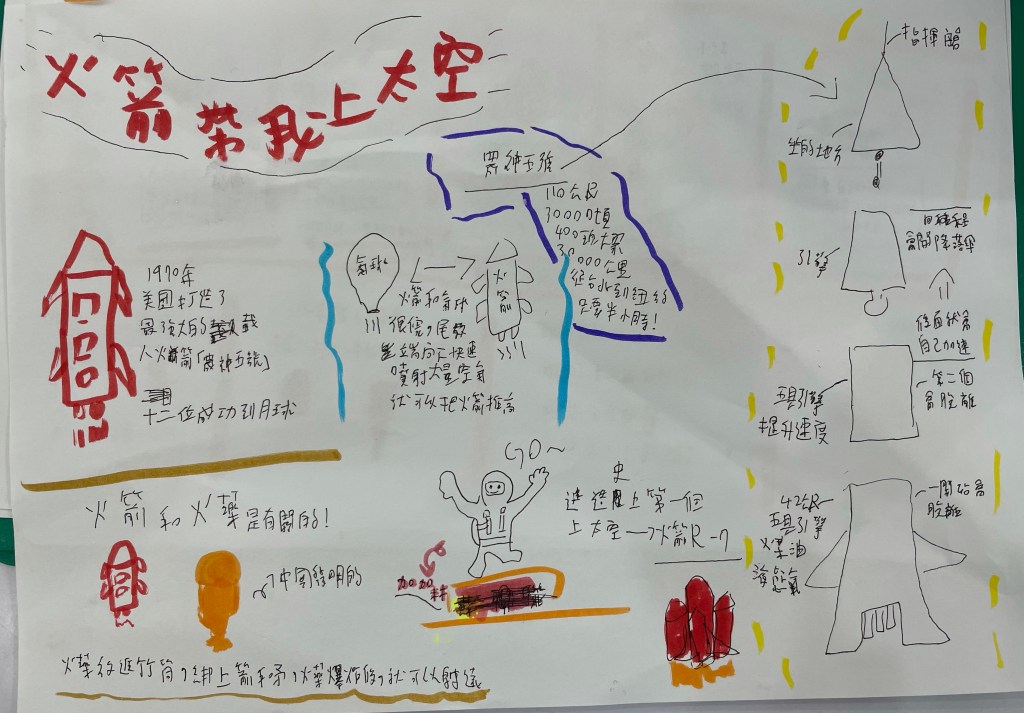 火箭帶我上太空
農神五號
110公尺
3000噸
400功大眾
30000公里
從台北到紐約
只要半小時!
1970年
美國打造了
最強大的載
人火箭「農神五號」
十二位成功到月球
氣球
火箭
火箭和氣球
很像,尾教
尖端向下快速
噴射大量空氣
就可以把火箭推高
指揮艙
坐的地方
引擎
回程
會開降落傘
後面狀態
自己加速
五具引擎
提升速度
第二個
會脫離
五具引擎
煤油
一開始會
脫離
火箭和火藥是有關的!
中國發明的
火藥放進竹筒,綁上箭和矛,火藥爆炸的,就可以射遠
GO~
加加料
史上第一個
上太空→火箭R-7